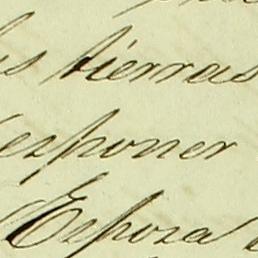 tierras
esponer
Esposa